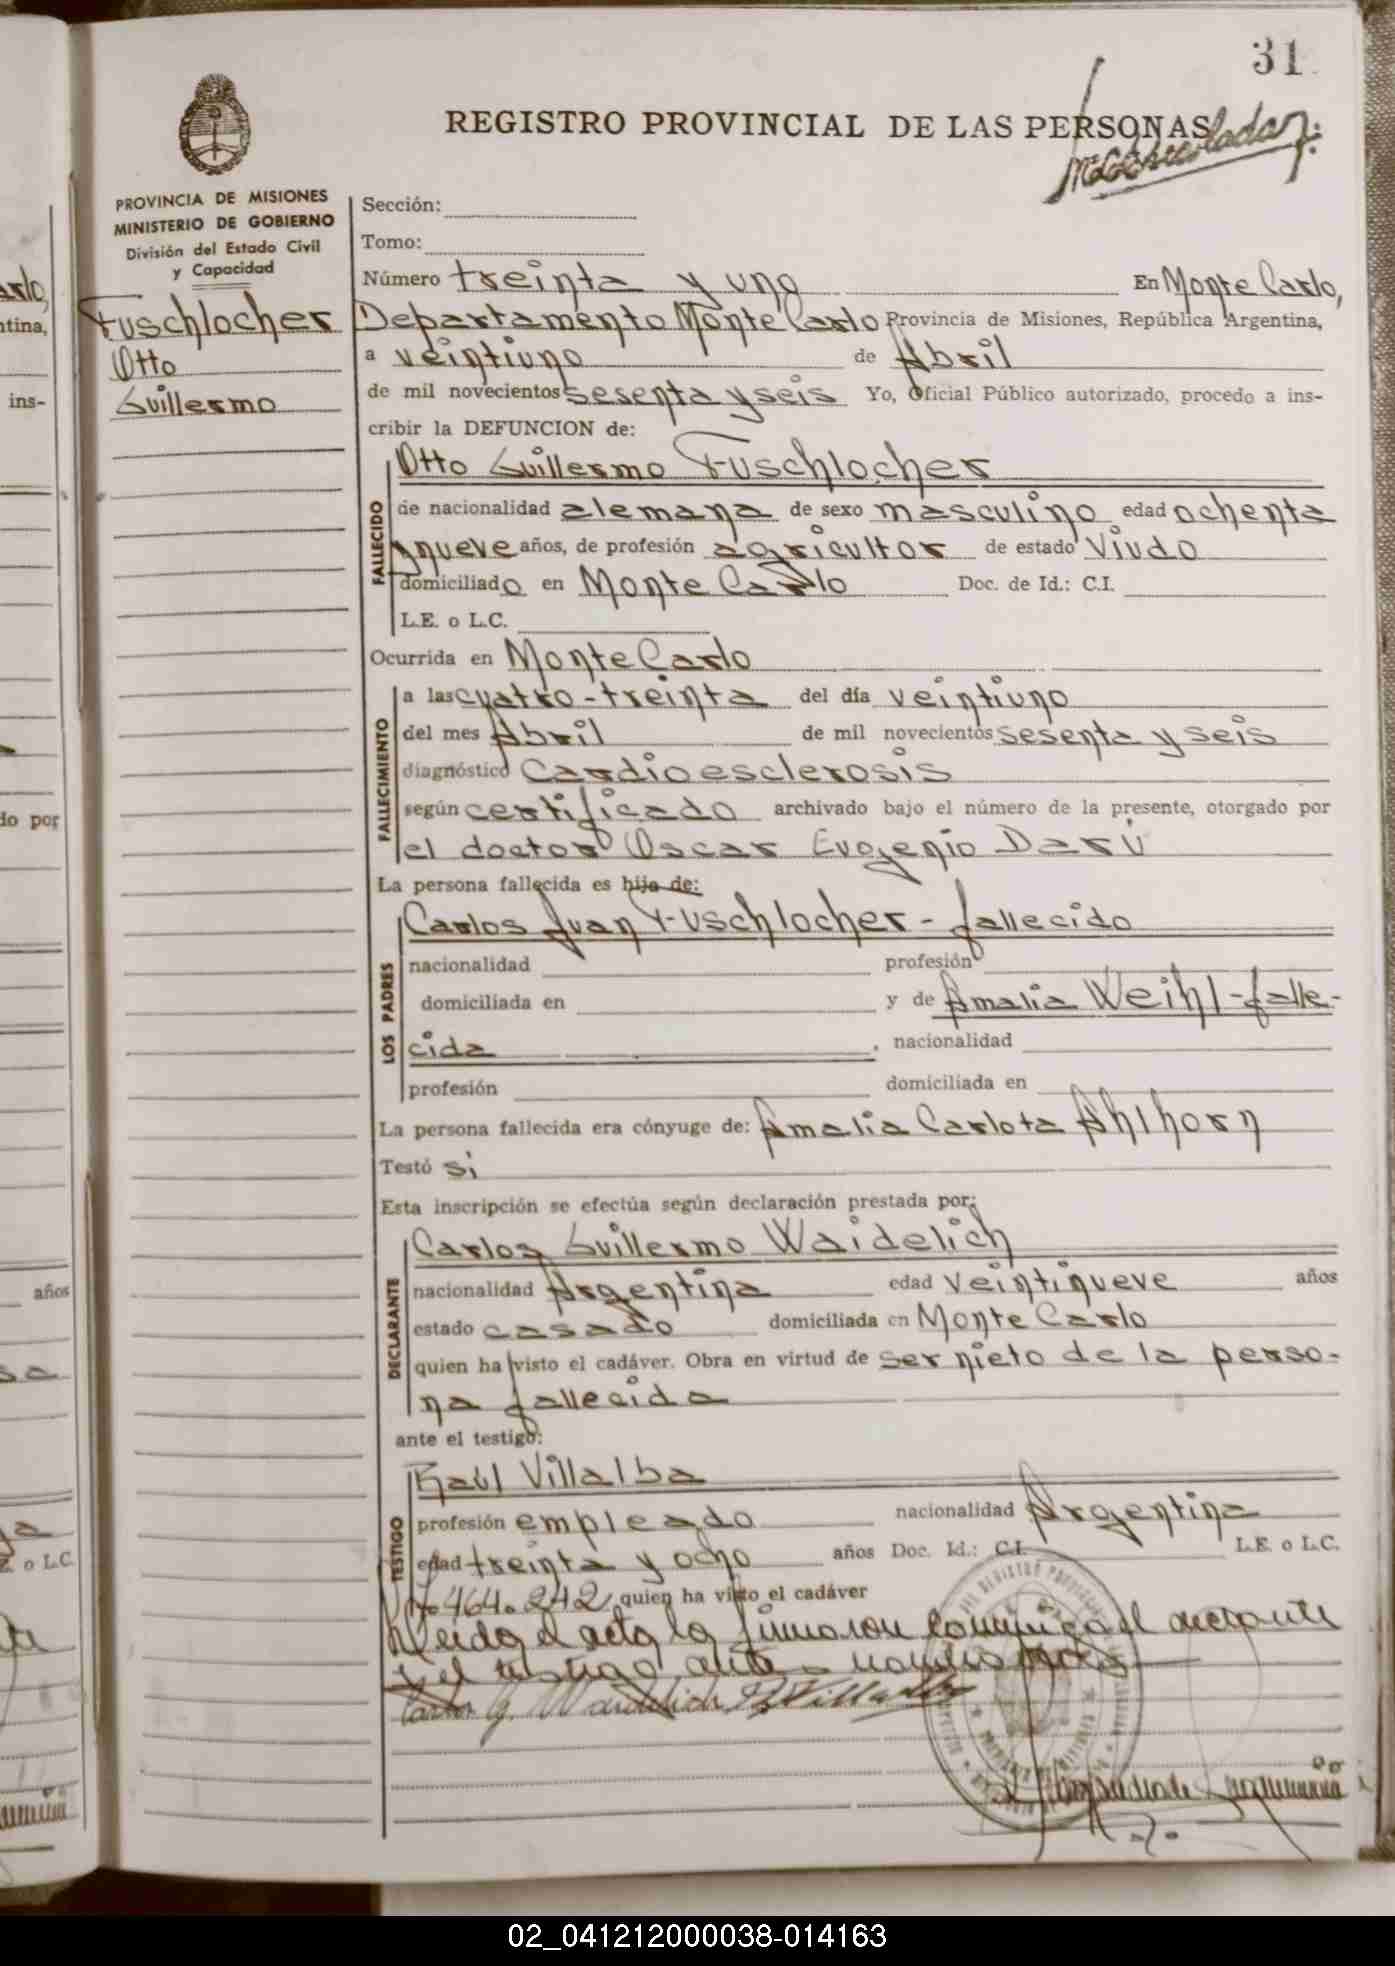 31
REGISTRO PROVINCIAL DE LAS PERSONAS
PROVINCIA DE MISIONES
MINISTERIO DE GOBIERNO
División del Estado Civil
y Capacidad
Fuschlocher
Otto
Guillermo
Sección:
Tomo:
Número treinta y uno En Monte Carlo,
Departamento Monte Carlo Provincia de Misiones, República Argentina,
a veintiuno de Abril
de mil novecientos sesenta y seis Yo, Oficial Público autorizado, procedo a ins-
cribir la DEFUNCION de:
FALLECIDO
Otto Guillermo Fuschlocher
de nacionalidad alemana de sexo masculino edad ochenta
y nueve años, de profesión agricultor de estado viudo
domiciliado en Monte Carlo Doc. de Id.: C.I.
L.E. o L.C.
Ocurrida en Monte Carlo
FALLECIMIENTO
a las cuatro-treinta del día veintiuno
del mes Abril de mil novecientos sesenta y seis
diagnóstico Cardioesclerosis
según certificado archivado bajo el número de la presente, otorgado por
el doctor Oscar Eugenio Darú
La persona fallecida es hijo de:
LOS PADRES
Carlos Juan Fuschlocher - fallecido
nacionalidad profesión
domiciliada en y de Amalia Weihl-falle-
cida , nacionalidad
profesión domiciliada en
La persona fallecida era cónyuge de: Amalia Carlota Ahlhorn
Testó si
Esta inscripción se efectúa según declaración prestada por:
DECLARANTE
Carlos Guillermo Waidelich
nacionalidad Argentina edad veintinueve años
estado casado domiciliada en Monte Carlo
quien ha visto el cadáver. Obra en virtud de ser nieto de la perso-
na fallecida
ante el testigo:
TESTIGO
Raúl Villalba
profesión empleado nacionalidad Argentina
edad treinta y ocho años Doc. Id.: C.I. L.E. o L.C.
7.464.242 quien ha visto el cadáver
Leida el acta la firmaron conmigo el declarante
y el testigo ante
Carlos G. Waidelich R. Villalba
arlo,
ntina,
ins-
do por
años
sa
o L.C.
02_041212000038-014163